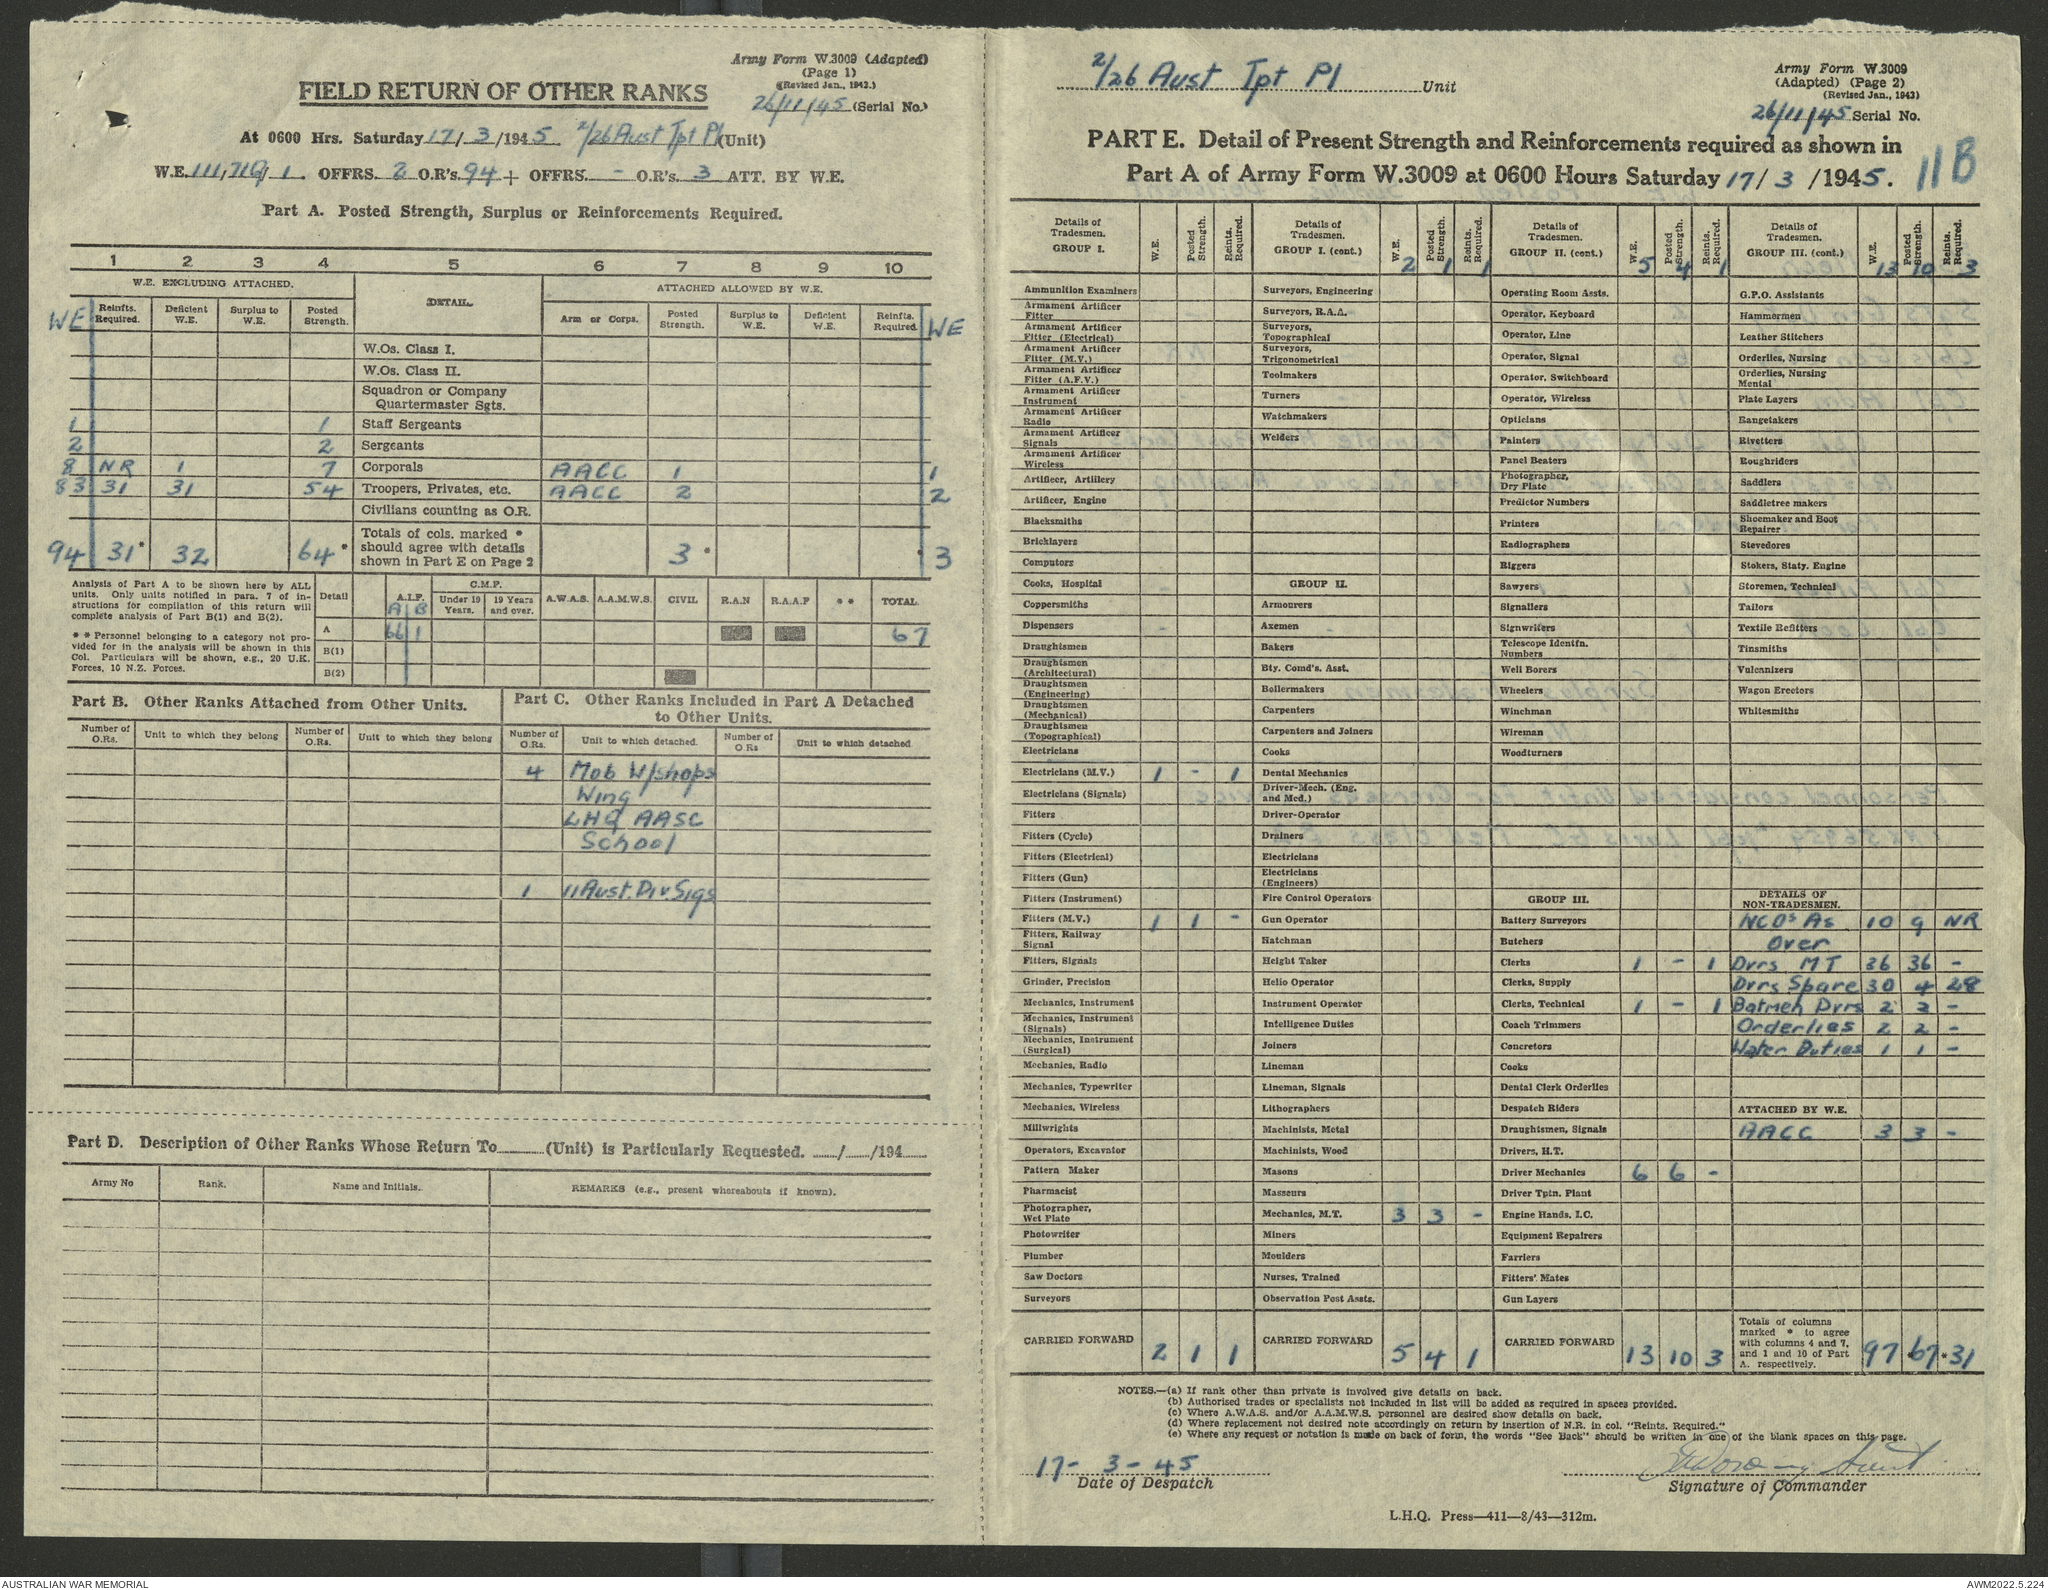 Army Form W.3009 (Adapted)
(Page 1)
(Revised Jan., 1943.)
FIELD RETURN OF OTHER RANKS
26/11/45 (Serial No.)
At 0600 Hrs. Saturday 17/3/1945. 2/26 Aust Tpt Pl (Unit)
W.E. 111,710,1 OFFRS. 2 O.R's. 94 + OFFRS. - O.R's. 3 ATT. BY W.E.
Part A. Posted Strength, Surplus or Reinforcements Required.
1 2 3 4 5 6 7 8 9 10
W.E. EXCLUDING ATTACHED. DETAIL. ATTACHED ALLOWED BY W.E.
WE Reinfts. Required. Deficient W.E. Surplus to W.E. Posted Strength. Arm or Corps. Posted Strength. Surplus to W.E. Deficient W.E. Reinfts. Required. WE
W.Os. Class I.
W.Os. Class II.
Squadron or Company
Quartermaster Sgts.
1 1 Staff Sergeants
2 2 Sergeants
8 NR 1 7 Corporals AACC 1 1
83 31 31 54 Troopers, Privates, etc. AACC 2 2
Civilians counting as O.R.
94 31* 32 64* Totals of cols. marked * should agree with details shown in Part E on Page 2 3* * 3
Analysis of Part A to be shown here by ALL
units. Only units notified in para. 7 of in-
structions for compilation of this return will
complete analysis of Part B(1) and B(2).
* * Personnel belonging to a category not pro-
vided for in the analysis will be shown in this
Col. Particulars will be shown, e.g., 20 U.K.
Forces, 10 N.Z. Forces.
Detail A.I.F. A B C.M.F. Under 19 Years. 19 Years and over. A.W.A.S. A.A.M.W.S. CIVIL R.A.N R.A.A.F * * TOTAL
A 66 1 67
B(1)
B(2)
Part B. Other Ranks Attached from Other Units.
Number of O.Rs. Unit to which they belong Number of O.Rs. Unit to which they belong
Part C. Other Ranks Included in Part A Detached
to Other Units.
Number of O.Rs. Unit to which detached. Number of O.Rs Unit to which detached
4 Mob W/shops
Wing
LHQ AASC
School
1 11 Aust. Div. Sigs
Part D. Description of Other Ranks Whose Return To (Unit) is Particularly Requested. / /194
Army No Rank. Name and Initials. REMARKS (e.g., present whereabouts if known).
2/26 Aust Tpt Pl Unit
Army Form W.3009
(Adapted) (Page 2)
(Revised Jan., 1943)
26/11/45 Serial No.
PART E. Detail of Present Strength and Reinforcements required as shown in
Part A of Army Form W.3009 at 0600 Hours Saturday 17/3/1945.
11B
Details of Tradesmen. GROUP I. W.E. Posted Strength. Reints. Required.
Ammunition Examiners
Armament Artificer Fitter
Armament Artificer Fitter (Electrical)
Armament Artificer Fitter (M.V.)
Armament Artificer Fitter (A.F.V.)
Armament Artificer Instrument
Armament Artificer Radio
Armament Artificer Signals
Armament Artificer Wireless
Artificer, Artillery
Artificer, Engine
Blacksmiths
Bricklayers
Computors
Cooks, Hospital
Coppersmiths
Dispensers
Draughtsmen
Draughtsmen (Architectural)
Draughtsmen (Engineering)
Draughtsmen (Mechanical)
Draughtsmen (Topographical)
Electricians
Electricians (M.V.) 1 - 1
Electricians (Signals)
Fitters
Fitters (Cycle)
Fitters (Electrical)
Fitters (Gun)
Fitters (Instrument)
Fitters (M.V.) 1 1 -
Fitters, Railway Signal
Fitters, Signals
Grinder, Precision
Mechanics, Instrument
Mechanics, Instrument (Signals)
Mechanics, Instrument (Surgical)
Mechanics, Radio
Mechanics, Typewriter
Mechanics, Wireless
Millwrights
Operators, Excavator
Pattern Maker
Pharmacist
Photographer, Wet Plate
Photowriter
Plumber
Saw Doctors
Surveyors
CARRIED FORWARD 2 1 1
Details of Tradesmen. GROUP I. (cont.) W.E. Posted Strength. Reints. Required. 2 1 1
Surveyors, Engineering
Surveyors, R.A.A.
Surveyors, Topographical
Surveyors, Trigonometrical
Toolmakers
Turners
Watchmakers
Welders
GROUP II.
Armourers
Axemen
Bakers
Bty. Comd's. Asst.
Boilermakers
Carpenters
Carpenters and Joiners
Cooks
Dental Mechanics
Driver-Mech. (Eng. and Med.)
Driver-Operator
Drainers
Electricians
Electricians (Engineers)
Fire Control Operators
Gun Operator
Hatchman
Height Taker
Helio Operator
Instrument Operator
Intelligence Duties
Joiners
Lineman
Lineman, Signals
Lithographers
Machinists, Metal
Machinists, Wood
Masons
Masseurs
Mechanics, M.T. 3 3 -
Miners
Moulders
Nurses, Trained
Observation Post Assts.
CARRIED FORWARD 5 4 1
Details of Tradesmen. GROUP II. (cont.) W.E. Posted Strength. Reints. Required. 5 4 1
Operating Room Assts.
Operator, Keyboard
Operator, Line
Operator, Signal
Operator, Switchboard
Operator, Wireless
Opticians
Painters
Panel Beaters
Photographer, Dry Plate
Predictor Numbers
Printers
Radiographers
Riggers
Sawyers
Signallers
Signwriters
Telescope Identfn. Numbers
Well Borers
Wheelers
Winchman
Wireman
Woodturners
GROUP III.
Battery Surveyors
Butchers
Clerks 1 - 1
Clerks, Supply
Clerks, Technical 1 - 1
Coach Trimmers
Concretors
Cooks
Dental Clerk Orderlies
Despatch Riders
Draughtsmen, Signals
Drivers, H.T.
Driver Mechanics 6 6 -
Driver Tptn. Plant
Engine Hands, I.C.
Equipment Repairers
Farriers
Fitters' Mates
Gun Layers
CARRIED FORWARD 13 10 3
Details of Tradesmen. GROUP III. (cont.) W.E. Posted Strength. Reints. Required. 13 10 3
G.P.O. Assistants
Hammermen
Leather Stitchers
Orderlies, Nursing
Orderlies, Nursing Mental
Plate Layers
Rangetakers
Rivetters
Roughriders
Saddlers
Saddletree makers
Shoemaker and Boot Repairer
Stevedores
Stokers, Staty. Engine
Storemen, Technical
Tailors
Textile Refitters
Tinsmiths
Vulcanizers
Wagon Erectors
Whitesmiths
DETAILS OF NON-TRADESMEN.
NCOs As 10 9 NR
Over
Dvrs MT 36 36 -
Dvrs Spare 30 4 28
Batmen Dvrs 2 2 -
Orderlies 2 2 -
Water Duties 1 1 -
ATTACHED BY W.E.
AACC 3 3 -
Totals of columns marked * to agree with columns 4 and 7, and 1 and 10 of Part A. respectively. 97 *67 *31
NOTES.—(a) If rank other than private is involved give details on back.
(b) Authorised trades or specialists not included in list will be added as required in spaces provided.
(c) Where A.W.A.S. and/or A.A.M.W.S. personnel are desired show details on back.
(d) Where replacement not desired note accordingly on return by insertion of N.R. in col. "Reints. Required."
(e) Where any request or notation is made on back of form, the words "See Back" should be written in one of the blank spaces on this page.
17-3-45
Date of Despatch
Signature of Commander
L.H.Q. Press—411—8/43—312m.
AUSTRALIAN WAR MEMORIAL
AWM2022.5.224